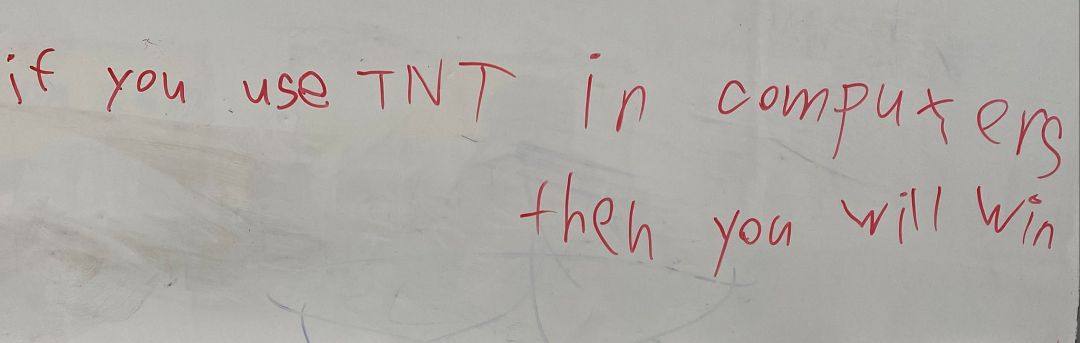 if you use TNT in computers
then you will win